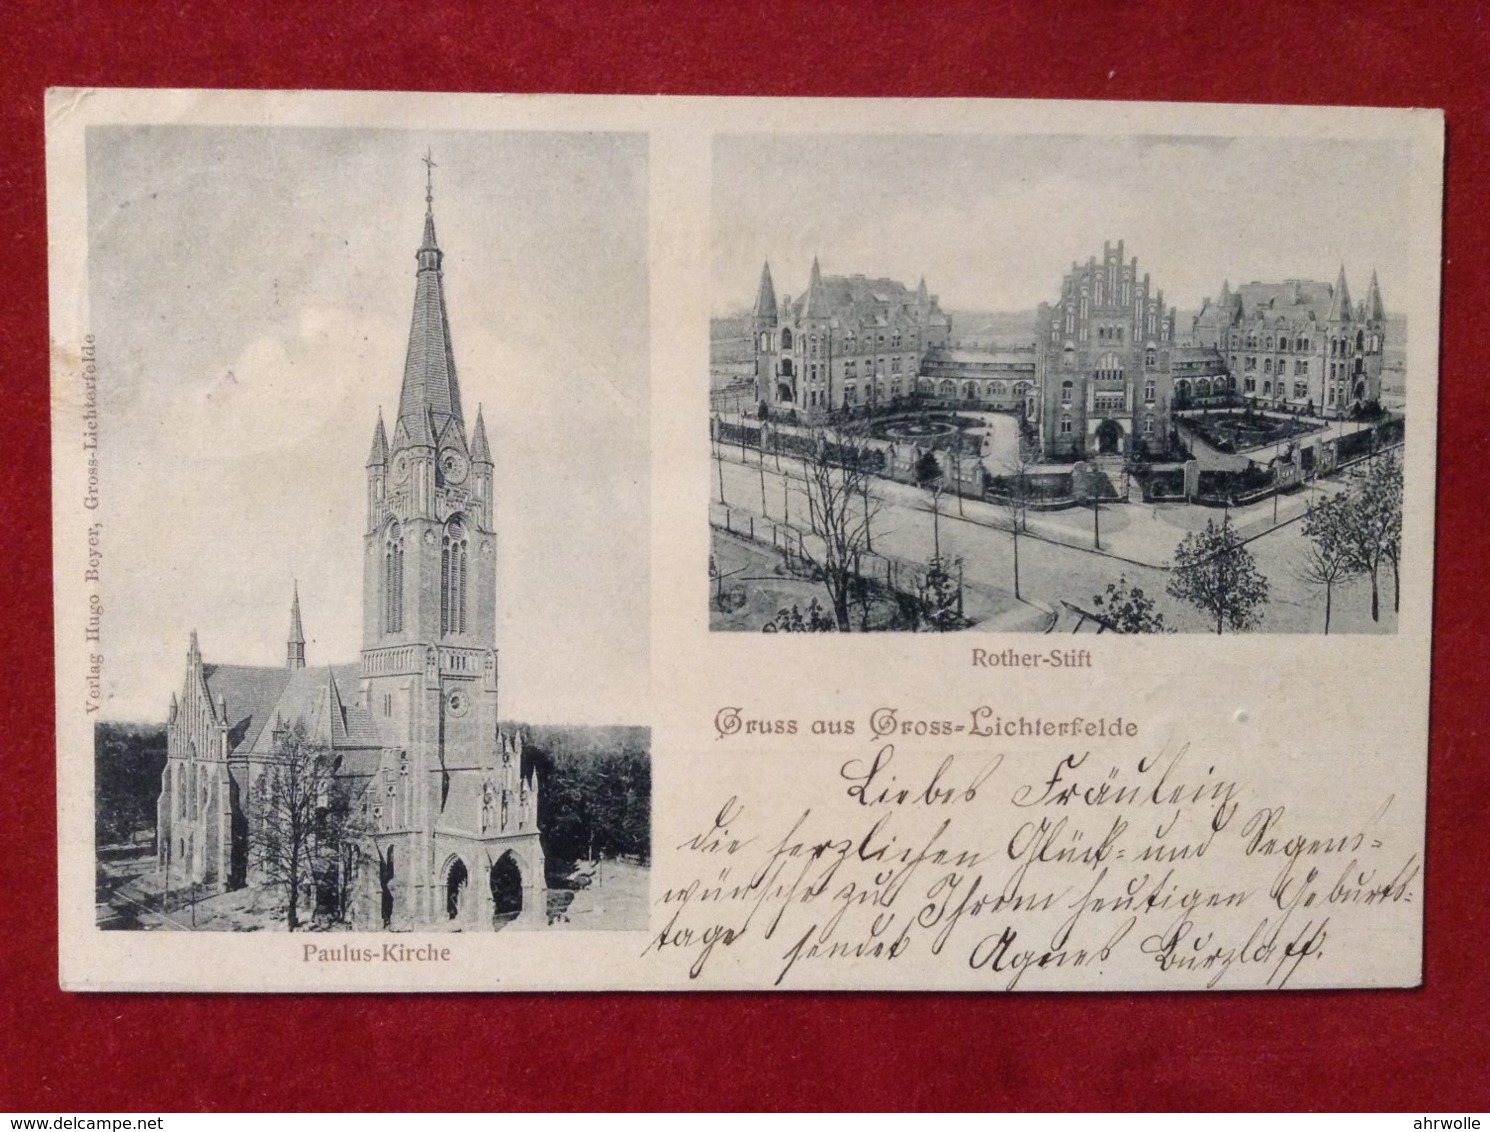 Verlag Hugo Beyer, Gross-Lichterfelde
Paulus-Kirche
Rother-Stift
Gruss aus Gross-Lichterfelde
Liebes Fräulein
die herzlichen Glück- und Segens-
wünsche zu Ihrem heutigen Geburts-
tage sendet Agnes Burzlaff.
www.delcampe.net
ahrwolle